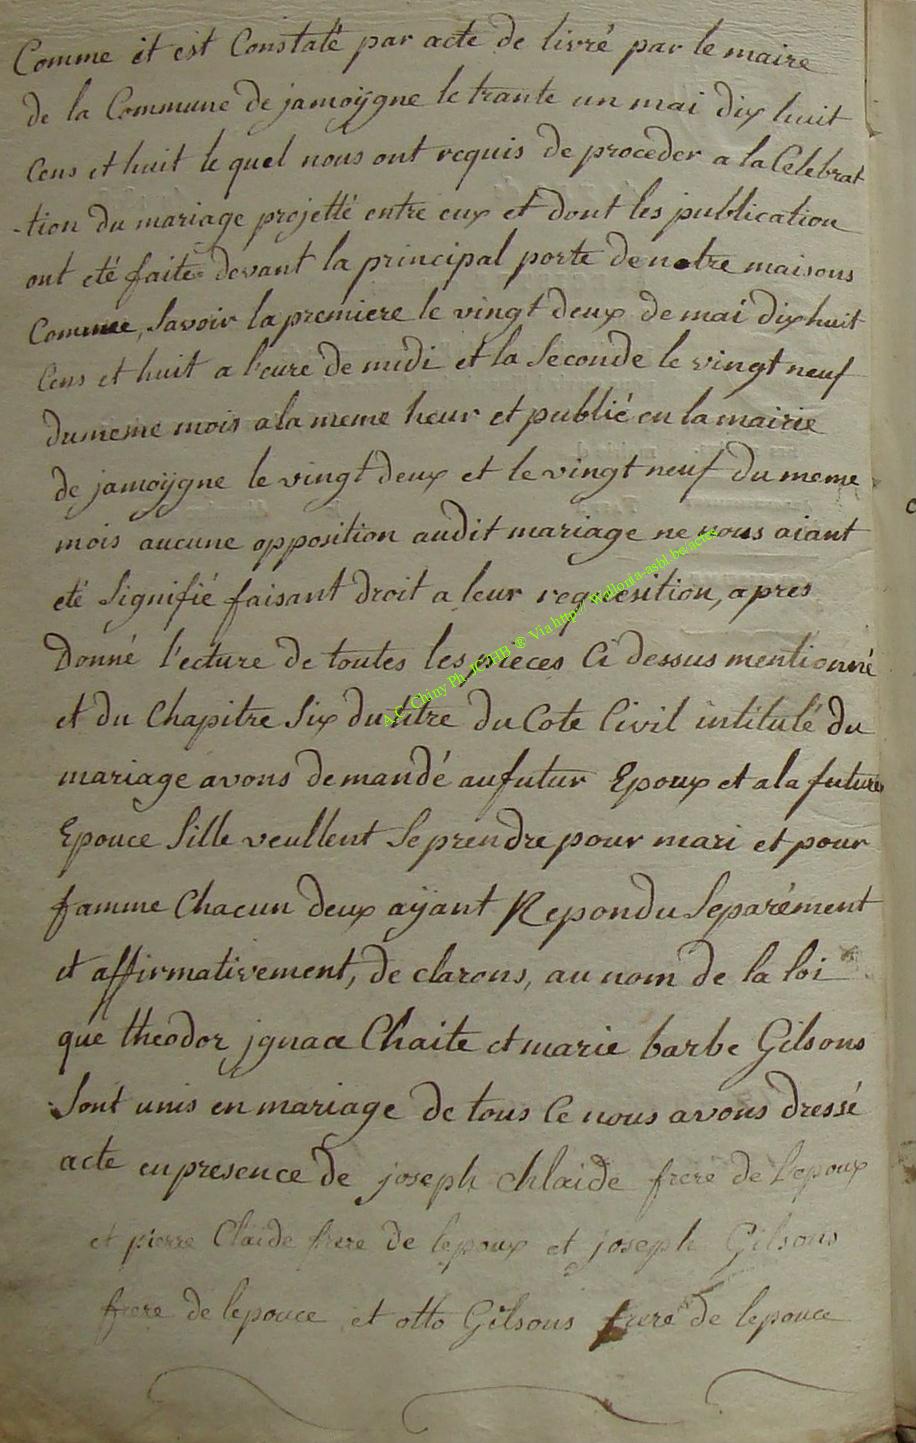 Comme it est Constaté par acte de livré par le maire
de la Commune de jamoÿgne le trante un mai dix huit
Cens et huit le quel nous ont requis de proceder a la Celebrat
-tion du mariage projetté entre eux et dont les publication
ont eté faite devant la principal porte de notre maisons
Commee, Savoir la premiere le vingt deux de mai dix huit
Cens et huit a l'eure de midi et la Seconde le vingt neuf
du meme mois a la meme heur et publié en la mairie
de jamoÿgne le vingt deux et le vingt neuf du meme
mois aucune opposition audit mariage ne nous aiant
eté Signifié faisant droit a leur requesition, apres
Donné l'ecture de toutes les pieces Ci dessus mentionné
et du Chapitre Six du titre du Cote Civil intitulé du
mariage avons demandé au futur Epoux et a la future
Epouce Sille veullent Se prendre pour mari et pour
famme Chacun deux aÿant Repondu Separément
et affirmativement, de clarons, au nom de la loi
que theodor jgnace Chaite et marie barbe Gilsons
Sont unis en mariage de tous Ce nous avons dressé
acte en presence de joseph Chlaide frere de L'epoux
et pierre Claide frere de lepoux et joseph Gilsons
frere de lepouce et otto Gilsons frere de lepouce
A.G. Chiny Ph. JCHHB ® Via http:// wallonia-asbl.be/actes